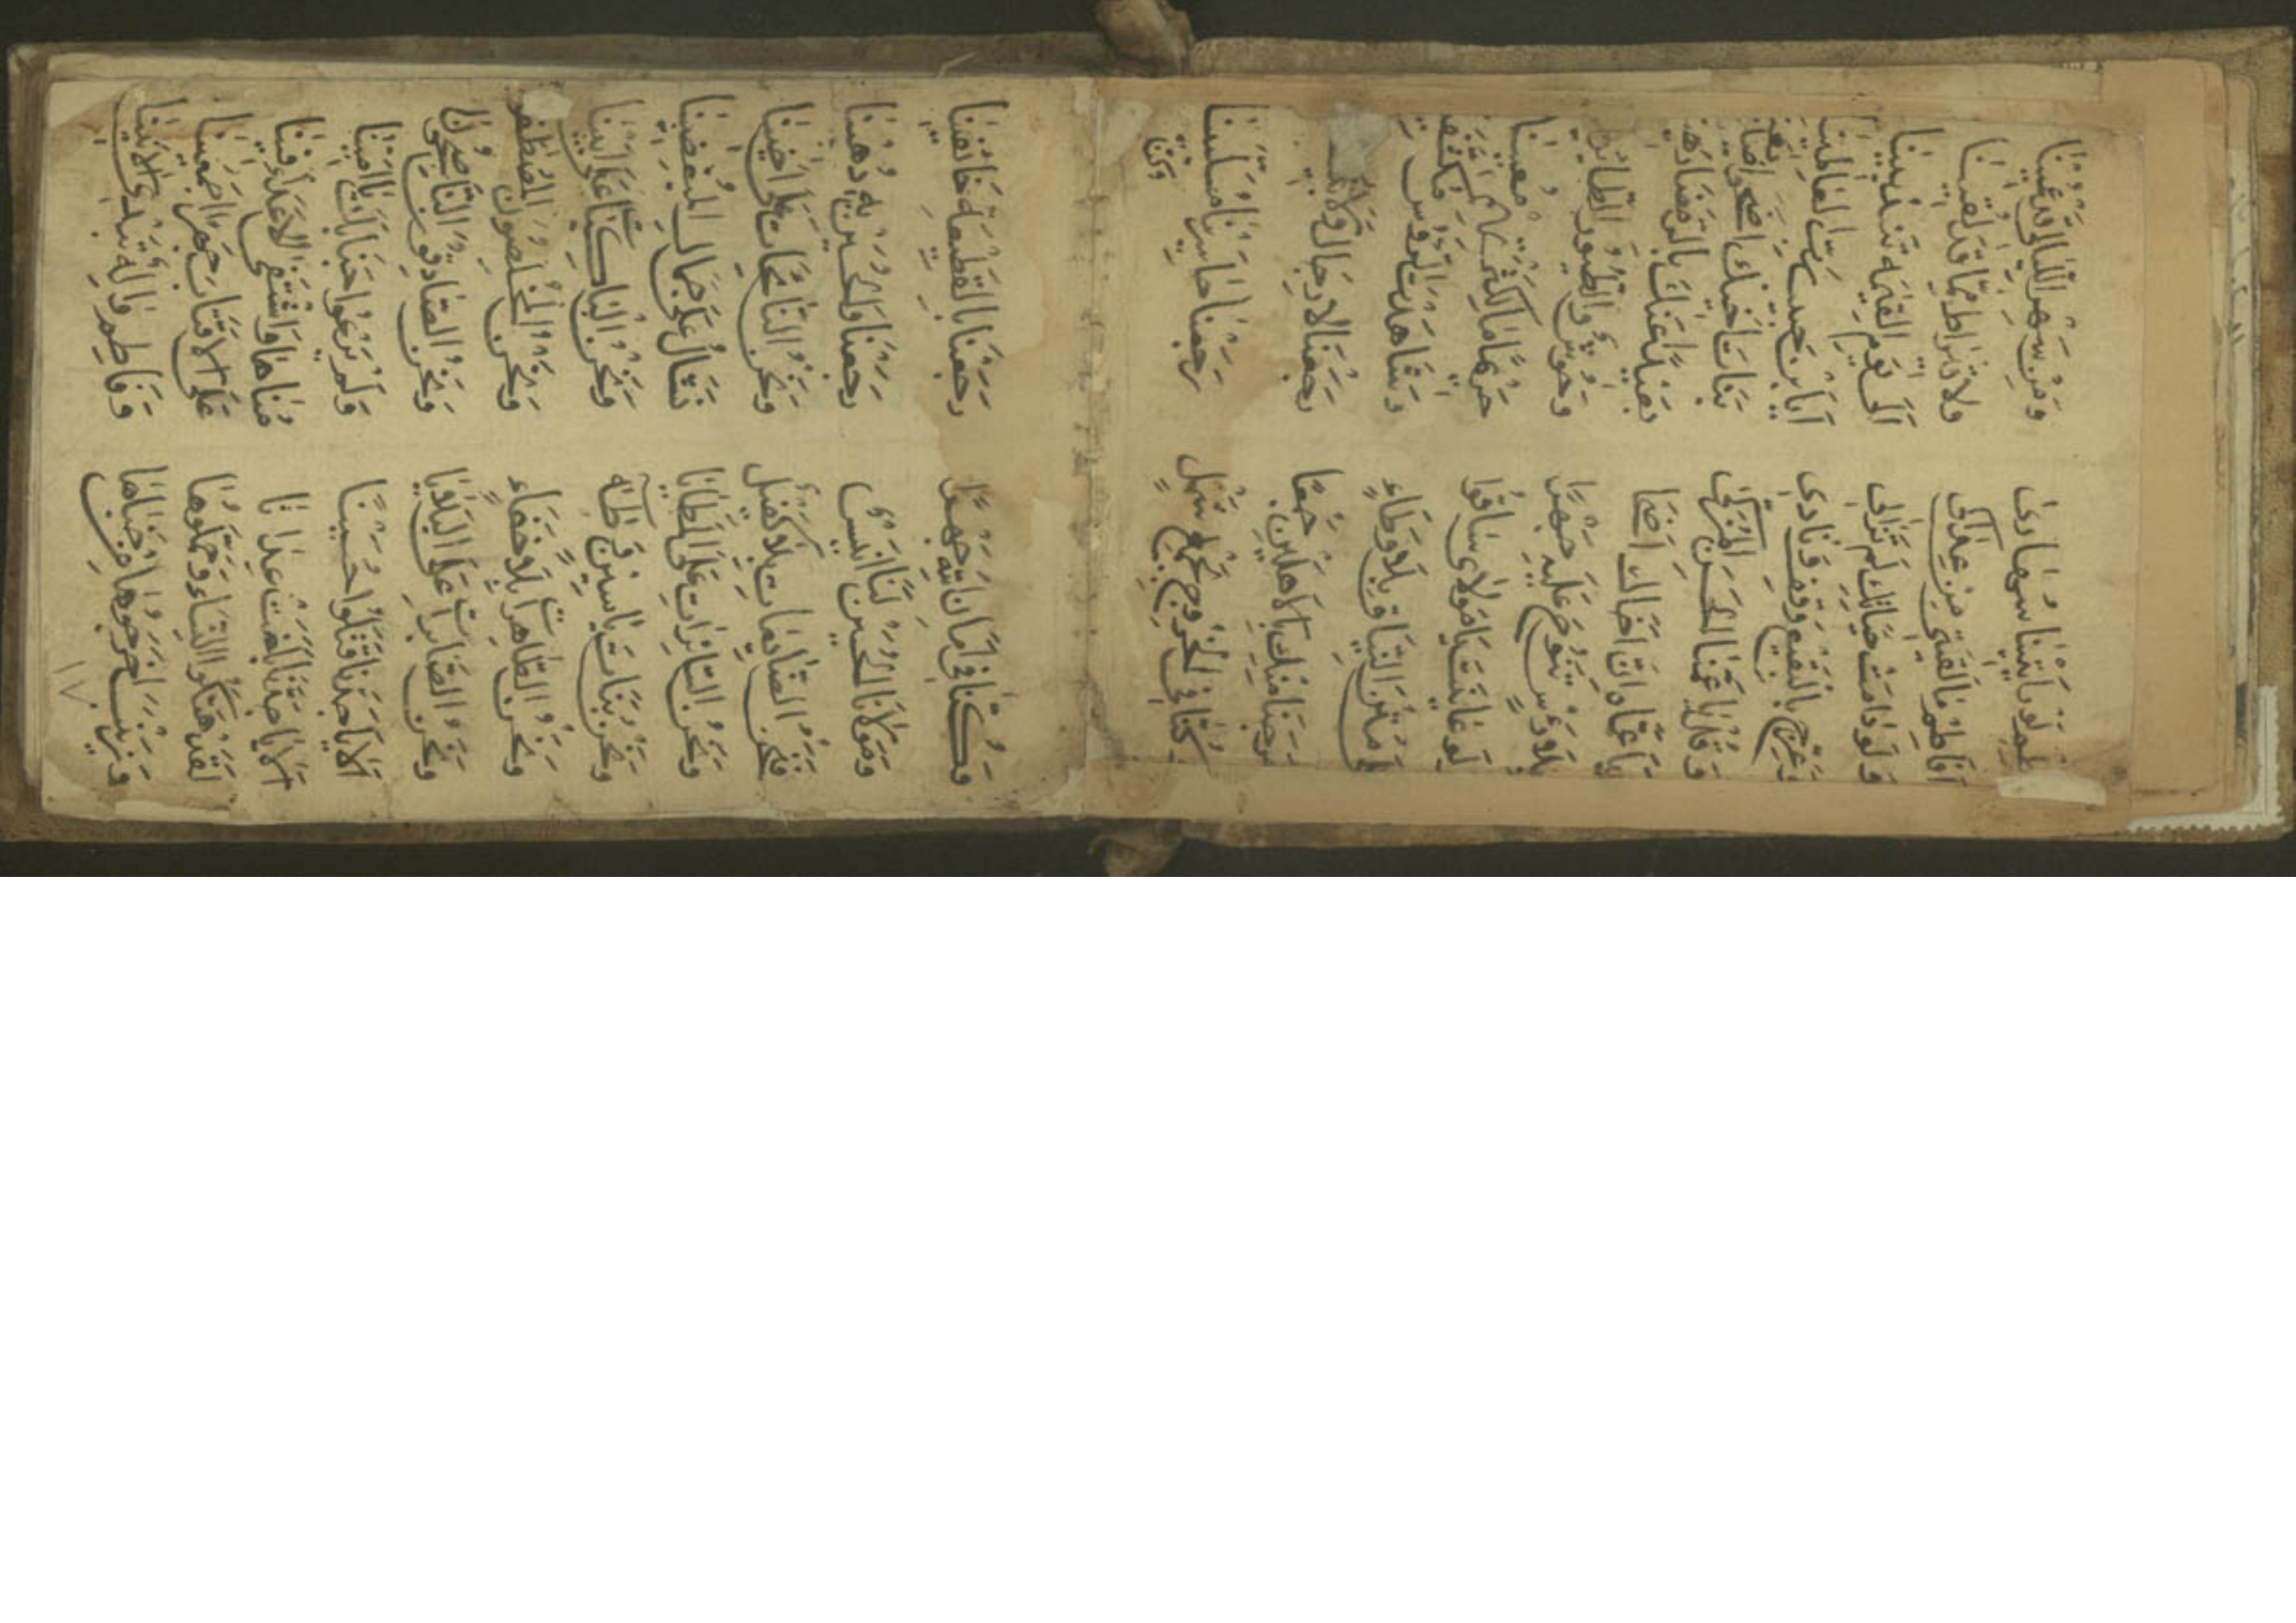 أفاطم لو رأيتنا سهارى ومن سهر الليالي قد عمينا
أفاطم ما لقيتي من عداكي ولا قيراط مما قد لقينا
ولو دامت حياتك لم تزالي إلى يوم القيمه تندبينا
وعرج بالبقيع وقف ونادي أيا بن حبيب رب العالمينا
وقل يا عمنا الحسن المزكى بنات أخيك أضحوا
يا عماه ان اخاك اضحا بعيدا عنك بالرمضا
بلا رأس تنوح عليه جهرا وحوش والطيور
لو عاينت يا مولاي ساقوا حريما معينا
متن النياق بلا وطاء وشاهدت الروس
خرجنا منك بالاهلين جمعا رجعنا لا رجال ولا
وكنا في الخروج بجمع شمل رجعنا حاسرين مسلبينا
وكنا
وكنا في امان الله جهرا رجعنا بالقطيعه خائفينا
ومولانا الحسين لنا انيس رجعنا والحسين به رهينا
فنحن الضايعات بلا كفيل ونحن النائحات على اخينا
ونحن السائرات على المطايا نشال على جمال المبغضينا
ونحن بنات ياسين وطه ونحن الباكيات على ابينا
ونحن الطاهرات بلا خفاء ونحن المخلصون
ونحن الصابرات على البلايا ونحن الصادقون الناصحون
الا يا جدنا قتلوا حسينا ولم يرعوا جناب
الا يا جدنا بلغت عدانا مناها واشتفى الاعداء فينا
لقد هتكوا النساء وحملوها على الاقتاب جهرا اجمعينا
وزينب اخرجوها من خباها وفاطم واله تبدي الانينا
١٧